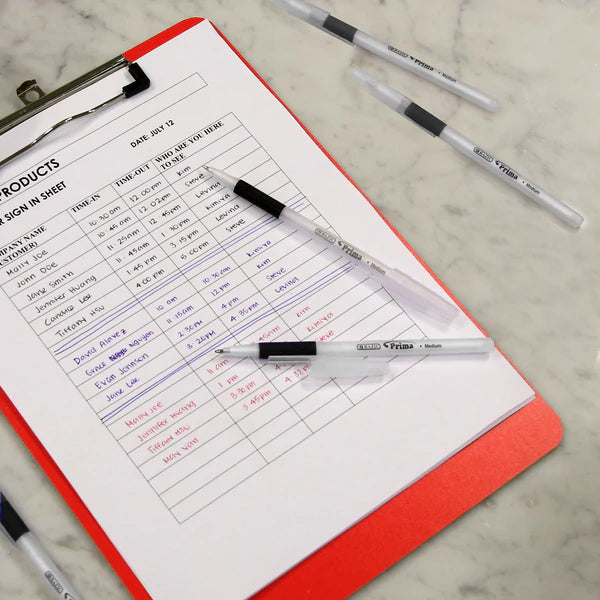 PRODUCTS
DATE: JULY 12
SIGN IN SHEET
COMPANY NAME
(CUSTOMER) TIME-IN TIME-OUT WHO ARE YOU HERE
TO SEE
Molly Joe 10:30 am 12:00 pm Kim
John Doe 10:45 am 12:02 pm Steve
Jane Smith 11:25 am 12:45 pm Levina
Jennifer Huang 11:45 am 1:30 pm Kimiya
Candice Lee 1:45 pm 3:15 pm Levina
Tiffany Hsu 4:00 pm 5:00 pm Steve
David Alavez 10 am 10:30 am Kimiya
Grace Nguyen 11:15am 12 pm Kim
Evan Johnson 2:30pm 4 pm Steve
Jane Lee 3:20pm 4:35 pm Levina
Molly Joe 11 am 45am Kim
Jennifer Huang 1 pm Kimiya
Tiffany Hsu 3:30 pm
May Van 3:45 pm 4:32 pm
BAZIC Prima • Medium
BAZIC Prima • Medium
BAZIC Prima • Medium
BAZIC Prima • Medium